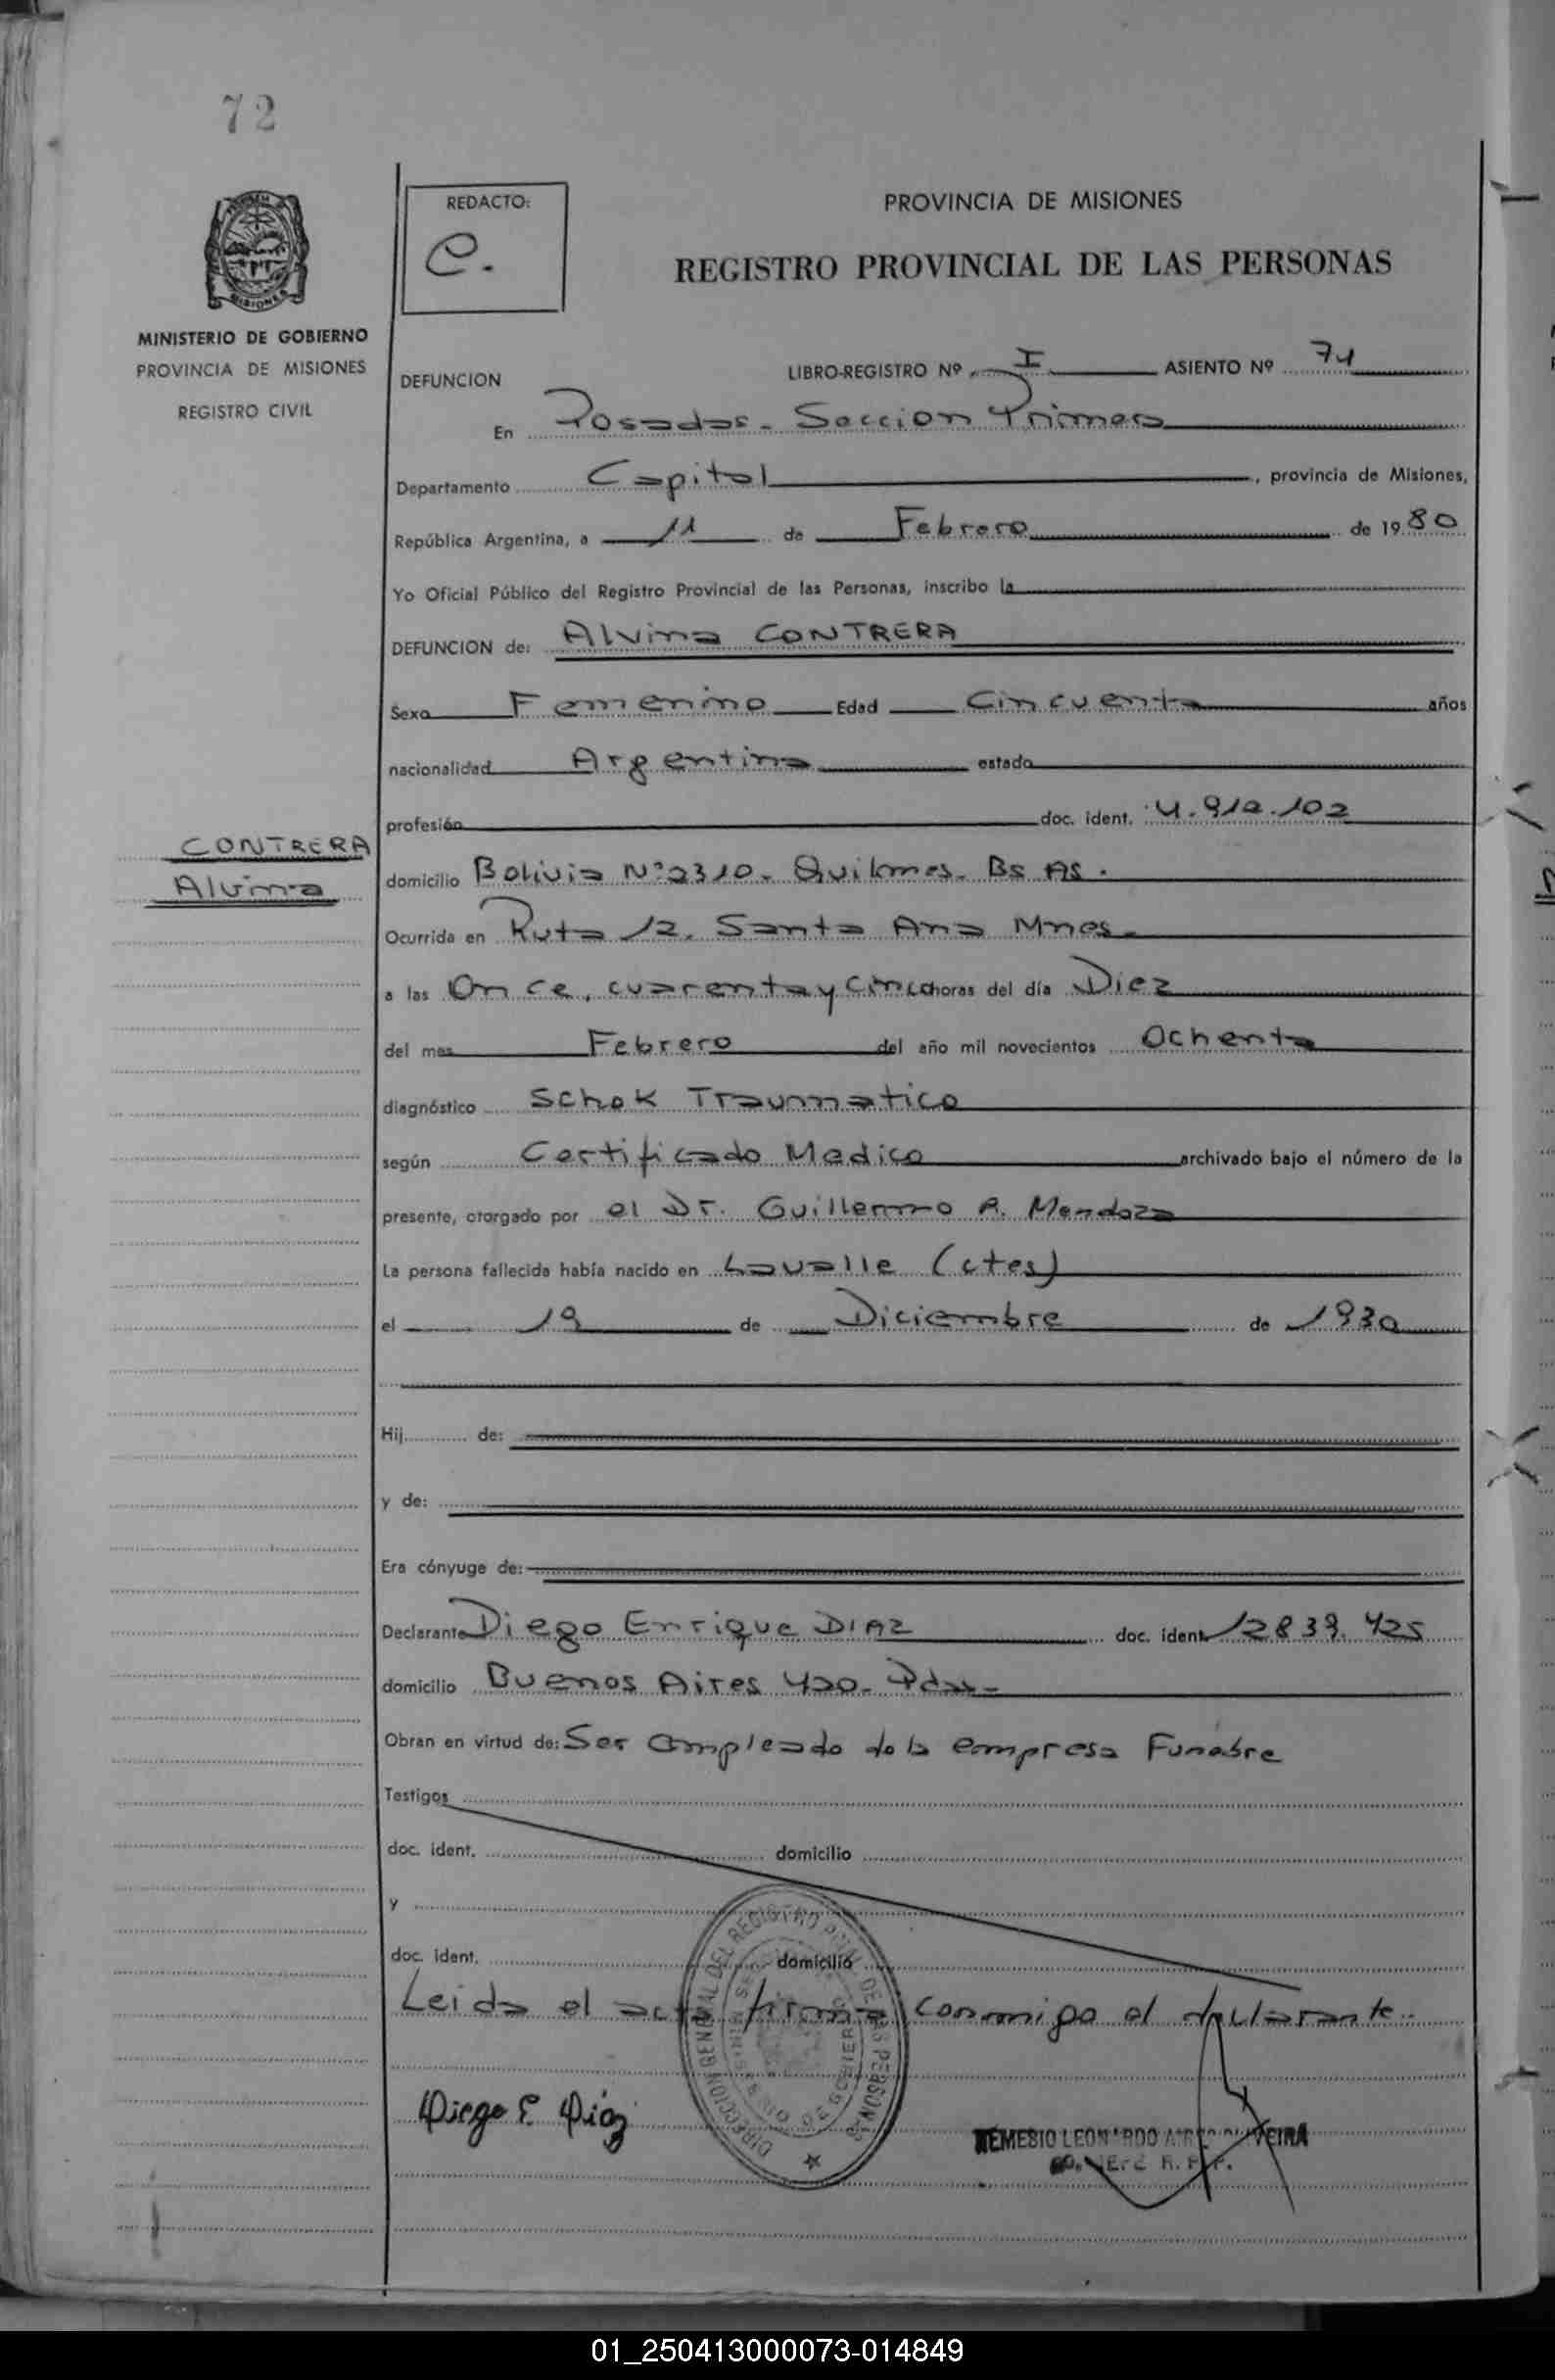 72
REDACTO:
C.
PROVINCIA DE MISIONES
REGISTRO PROVINCIAL DE LAS PERSONAS
MINISTERIO DE GOBIERNO
PROVINCIA DE MISIONES
REGISTRO CIVIL
DEFUNCION LIBRO-REGISTRO Nº I ASIENTO Nº 71
En Posadas - Seccion Primera
Departamento Capital, provincia de Misiones,
República Argentina, a 11 de Febrero de 1980
Yo Oficial Público del Registro Provincial de las Personas, inscribo la
DEFUNCION de: Alvina CONTRERA
Sexo Femenino Edad Cincuenta años
nacionalidad Argentina estado
profesión doc. ident. 4.912.102
CONTRERA
Alvina
domicilio Bolivia Nº 2310. Quilmes. Bs As.
Ocurrida en Ruta 12. Santa Ana Mnes.
a las Once, cuarenta y cinco horas del día Diez
del mes Febrero del año mil novecientos Ochenta
diagnóstico Schok Traumatico
según Certificado Medico archivado bajo el número de la
presente, otorgado por el Dr. Guillermo A. Mendoza
La persona fallecida había nacido en Lavalle (ctes)
el 19 de Diciembre de 1930
Hij de:
y de:
Era cónyuge de:
Declarante Diego Enrique DIAZ doc. ident. 12839.425
domicilio Buenos Aires 420. Pdas-
Obran en virtud de: Ser empleado de la empresa Funebre
Testigos
doc. ident. domicilio
y
doc. ident. domicilio
Leida el acta firma conmigo el declarante.
DIRECCION GENERAL DEL REGISTRO PROV. DE LAS PERSONAS
Diego E. Díaz
NEMESIO LEONARDO
R. P. P.
01_250413000073-014849